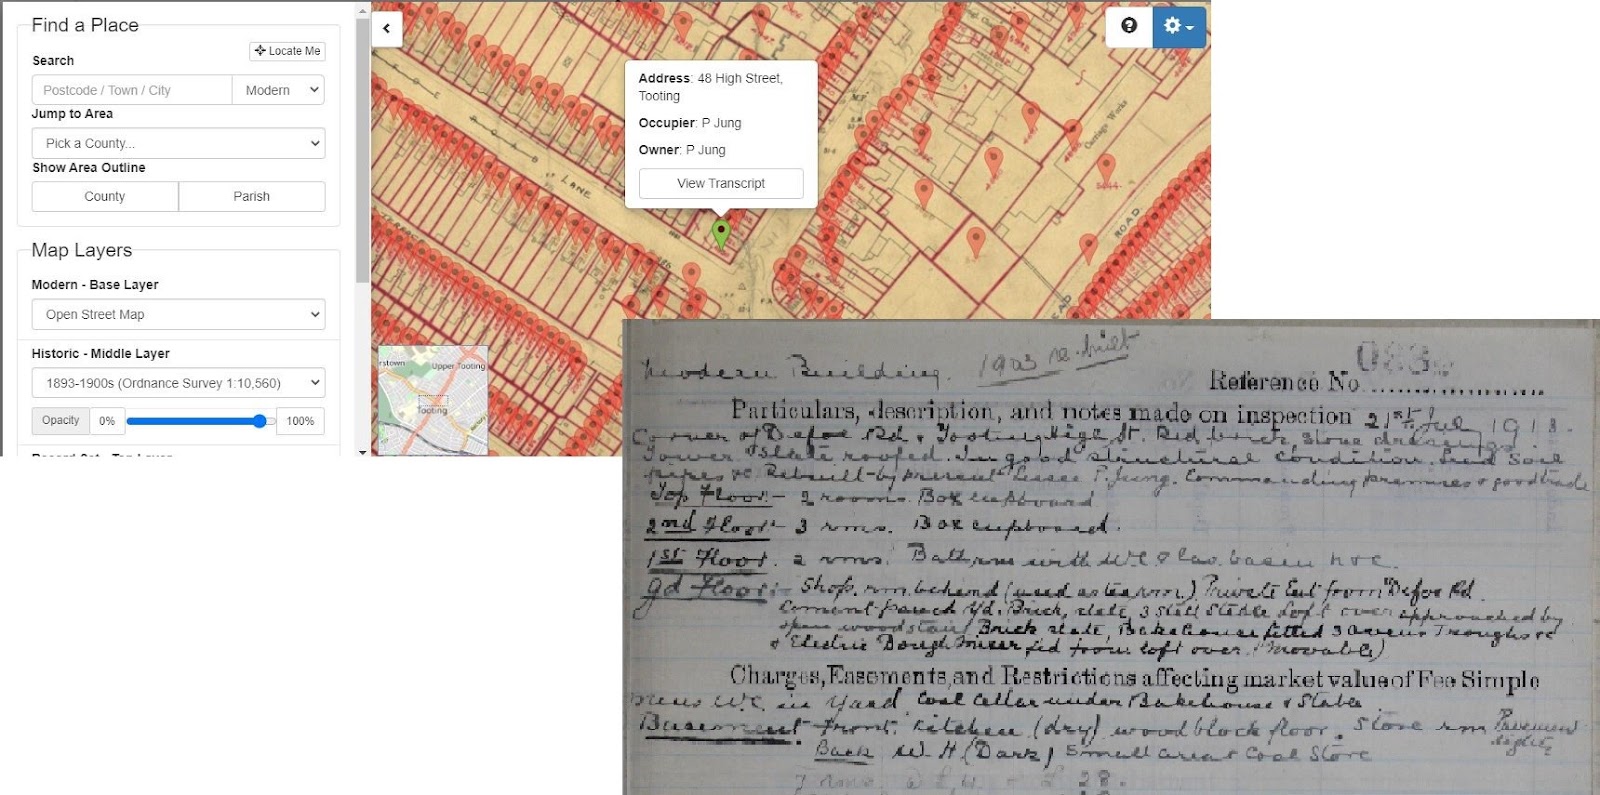 Find a Place
Locate Me
Search
Postcode / Town / City
Modern
Jump to Area
Pick a County...
Show Area Outline
County
Parish
Map Layers
Modern - Base Layer
Open Street Map
Historic - Middle Layer
1893-1900s (Ordnance Survey 1:10,560)
Opacity
0%
100%
Address: 48 High Street,
Tooting
Occupier: P Jung
Owner: P Jung
View Transcript
ROAD
LANE
Carriage Works
ROAD
Upper Tooting
Tooting
Modern Building. 1903 re-built
Reference No.
Particulars, description, and notes made on inspection 21st July 1913.
Corner of Defoe Rd & Tooting High St. Red brick, stone dressings.
Tower & Slate roofed. In good structural condition. Lead Soil
pipes &c. Rebuilt by present Lessee P. Jung. Commanding premises & good trade
Top Floor:- 2 rooms. Box cupboard
2nd Floor:- 3 rms. Box cupboard.
1st Floor. 2 rms. Bathrm with W.C. & Lav. basin h & c.
Gd Floor:- Shop, rm behind (used as tea rm) Private Ent from Defoe Rd.
Cement paved Yd. Brick, slate, 3 stall Stable Loft over approached by
open wood stair/ Brick slate, Bakehouse fitted 3 ovens Troughs &c
& Electric Dough mixer fed from loft over. (Movable)
Charges, Easements, and Restrictions affecting market value of Fee Simple
Mens W.C. in Yard Coal Cellar under Bakehouse & Stable
Basement Front. Kitchen (dry) wood block floor. Store rm Pavement
lights
Back W.H (Dark) Small area & Coal Store
7 rms @ £4 = £ 28.